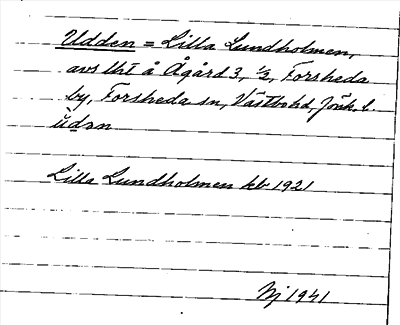 Udden = Lilla Lundholmen,
avs lht å Ågård 3, ½, Forsheda
by, Forsheda sn, Västbo hd, Jönk. l.
ùdən
Lilla Lundholmen kb 1921
Nj 1941